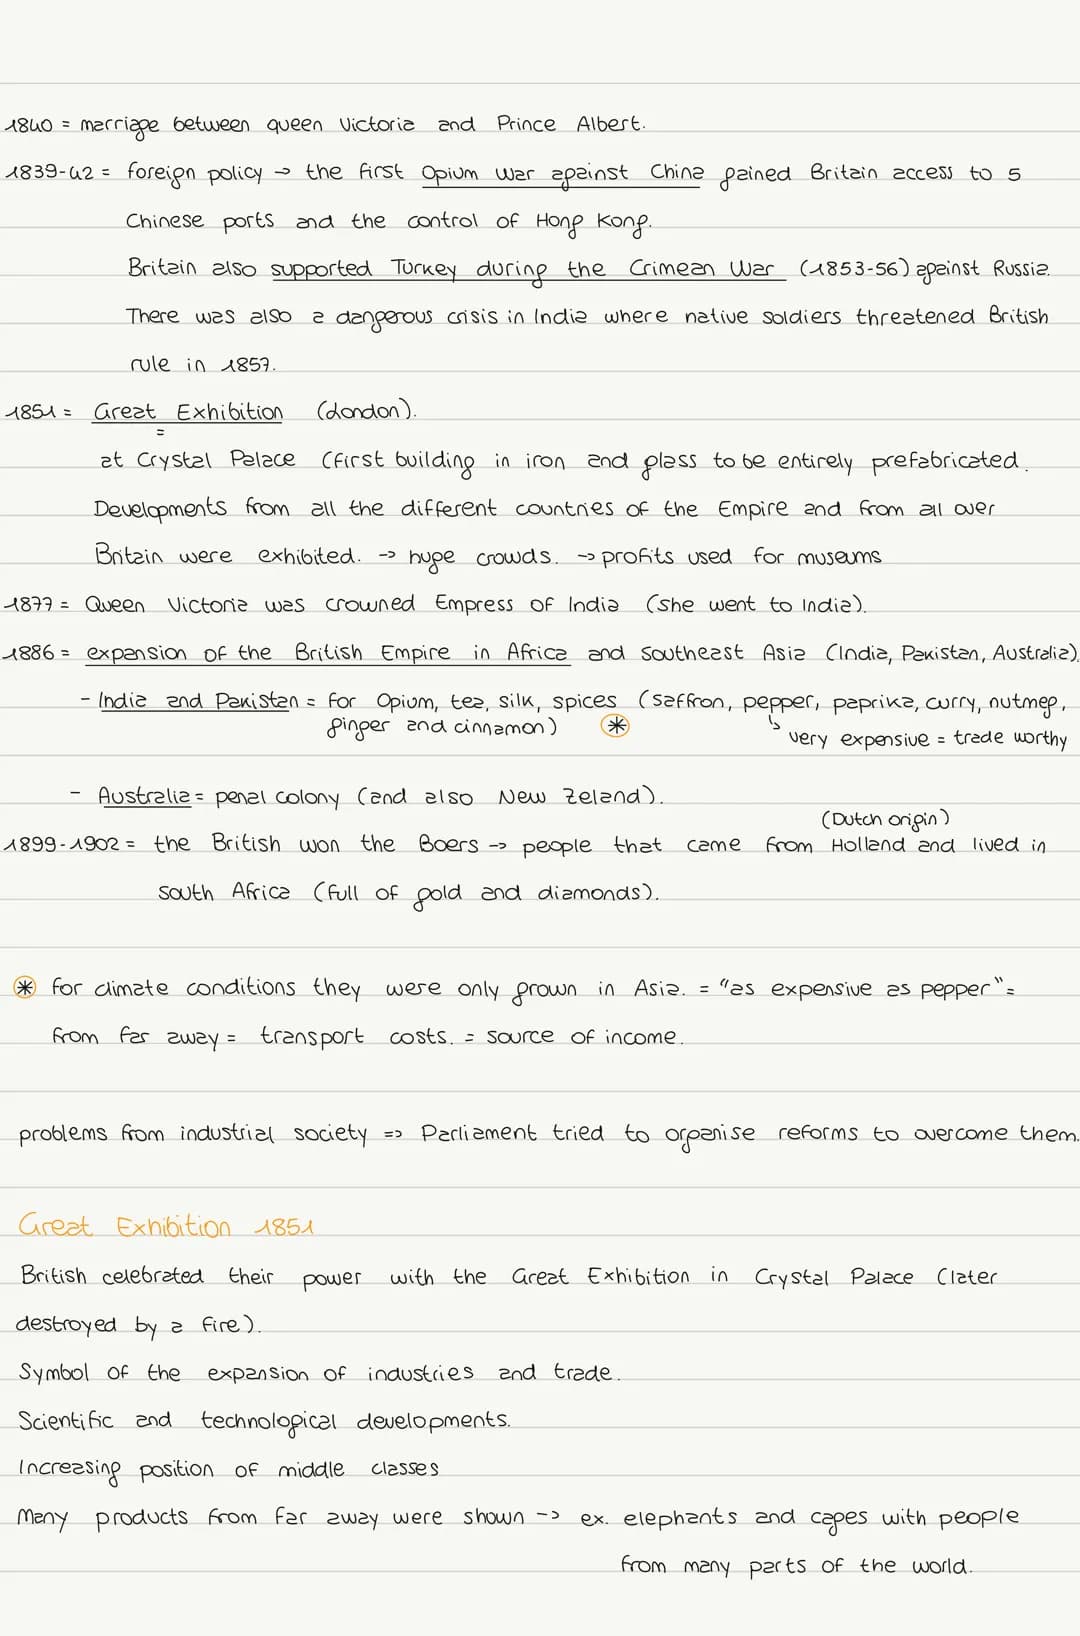 1840 = marriage between queen Victoria and Prince Albert.
1839-42 = foreign policy → the first Opium War against China gained Britain access to 5
Chinese ports and the control of Hong Kong.
Britain also supported Turkey during the Crimean War (1853-56) against Russia.
There was also a dangerous crisis in India where native soldiers threatened British
rule in 1857.
1851 = Great Exhibition (London).
=
at Crystal Palace (first building in iron and glass to be entirely prefabricated.
Developments from all the different countries of the Empire and from all over
Britain were exhibited. → huge crowds. → profits used for museums
1877 = Queen Victoria was crowned Empress of India (she went to India).
1886 = expansion of the British Empire in Africa and Southeast Asia (India, Pakistan, Australia).
- India and Pakistan = for Opium, tea, silk, spices (saffron, pepper, paprika, curry, nutmeg,
ginger and cinnamon) *
↳ very expensive = trade worthy
- Australia = penal colony (and also New Zeland).
(Dutch origin)
1899-1902 = the British won the Boers → people that came from Holland and lived in
South Africa (full of gold and diamonds).
* for climate conditions they were only grown in Asia. = "as expensive as pepper" =
from far away = transport costs. = source of income.
problems from industrial society => Parliament tried to organise reforms to overcome them.
Great Exhibition 1851
British celebrated their power with the Great Exhibition in Crystal Palace (later
destroyed by a fire).
Symbol of the expansion of industries and trade.
Scientific and technological developments.
Increasing position of middle classes
Many products from far away were shown → ex. elephants and cages with people
from many parts of the world.